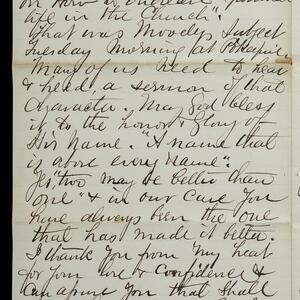 on how to increase
life in the Church".
What was Moodys subject
Tuesday morning at
Many of us need to hear
& heed, a sermon of that
Character. May God bless
it to the honor & Glory of
His Name. "A name that
is above every name".
Yes, "two may be better than
one" & in our case you
have always been the one
that has made it better.
I thank You from my heart
for your love & Confidence &
Can assure You that shall